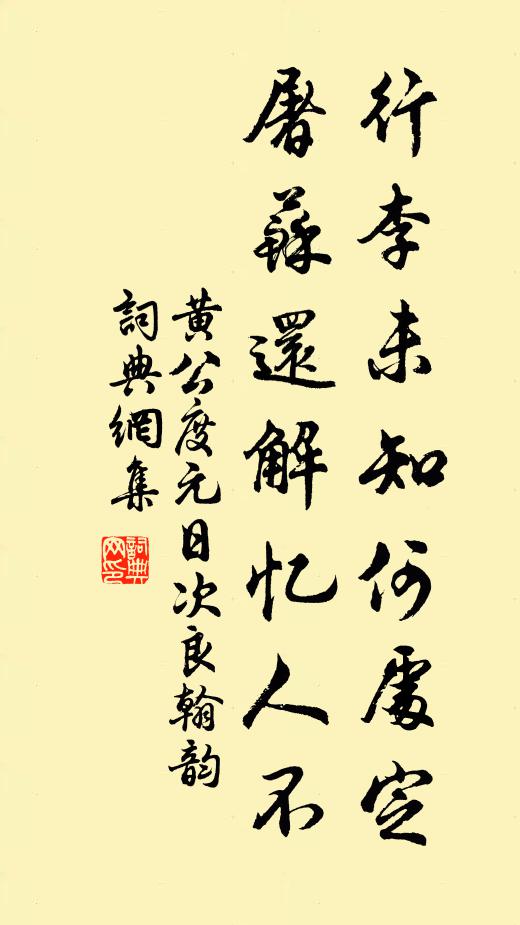 行李未知何處定
屠蘇還解忆人不
黄公度元日次良翰韵
詞典網集
詞典
网印